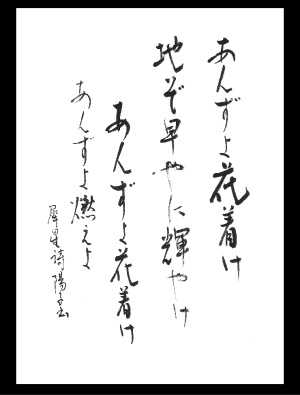 あんずよ花着け
地ぞ早やに輝やけ
あんずよ花着け
あんずよ燃えよ
犀星詩 陽子書